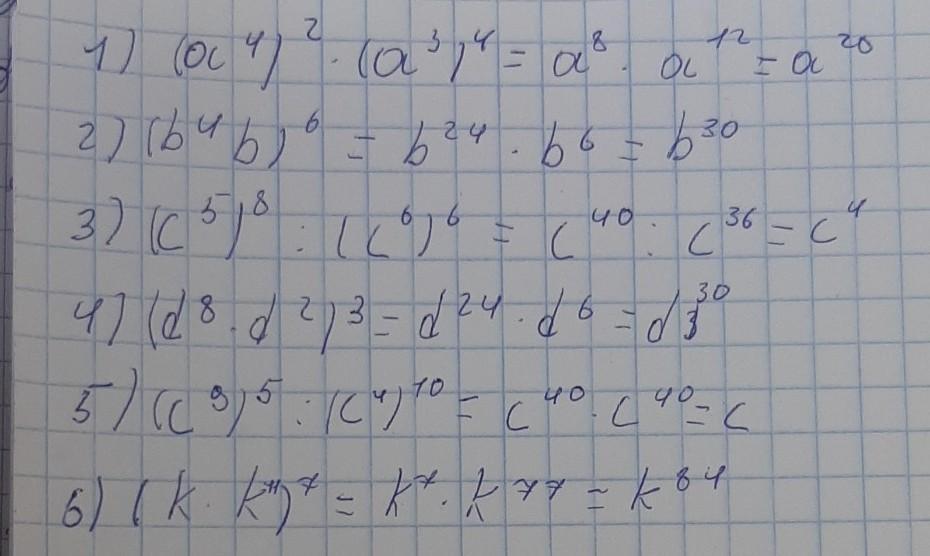 1) (a⁴)² · (a³)⁴ = a⁸ · a¹² = a²⁰
2) (b⁴ b)⁶ = b²⁴ · b⁶ = b³⁰
3) (c⁵)⁸ : (c⁶)⁶ = c⁴⁰ : c³⁶ = c⁴
4) (d⁸ · d²)³ = d²⁴ · d⁶ = d³⁰
5) (c⁹)⁵ : (c⁴)¹⁰ = c⁴⁰ · c⁴⁰ = c
6) (k · k¹¹)⁷ = k⁷ · k⁷⁷ = k⁸⁴